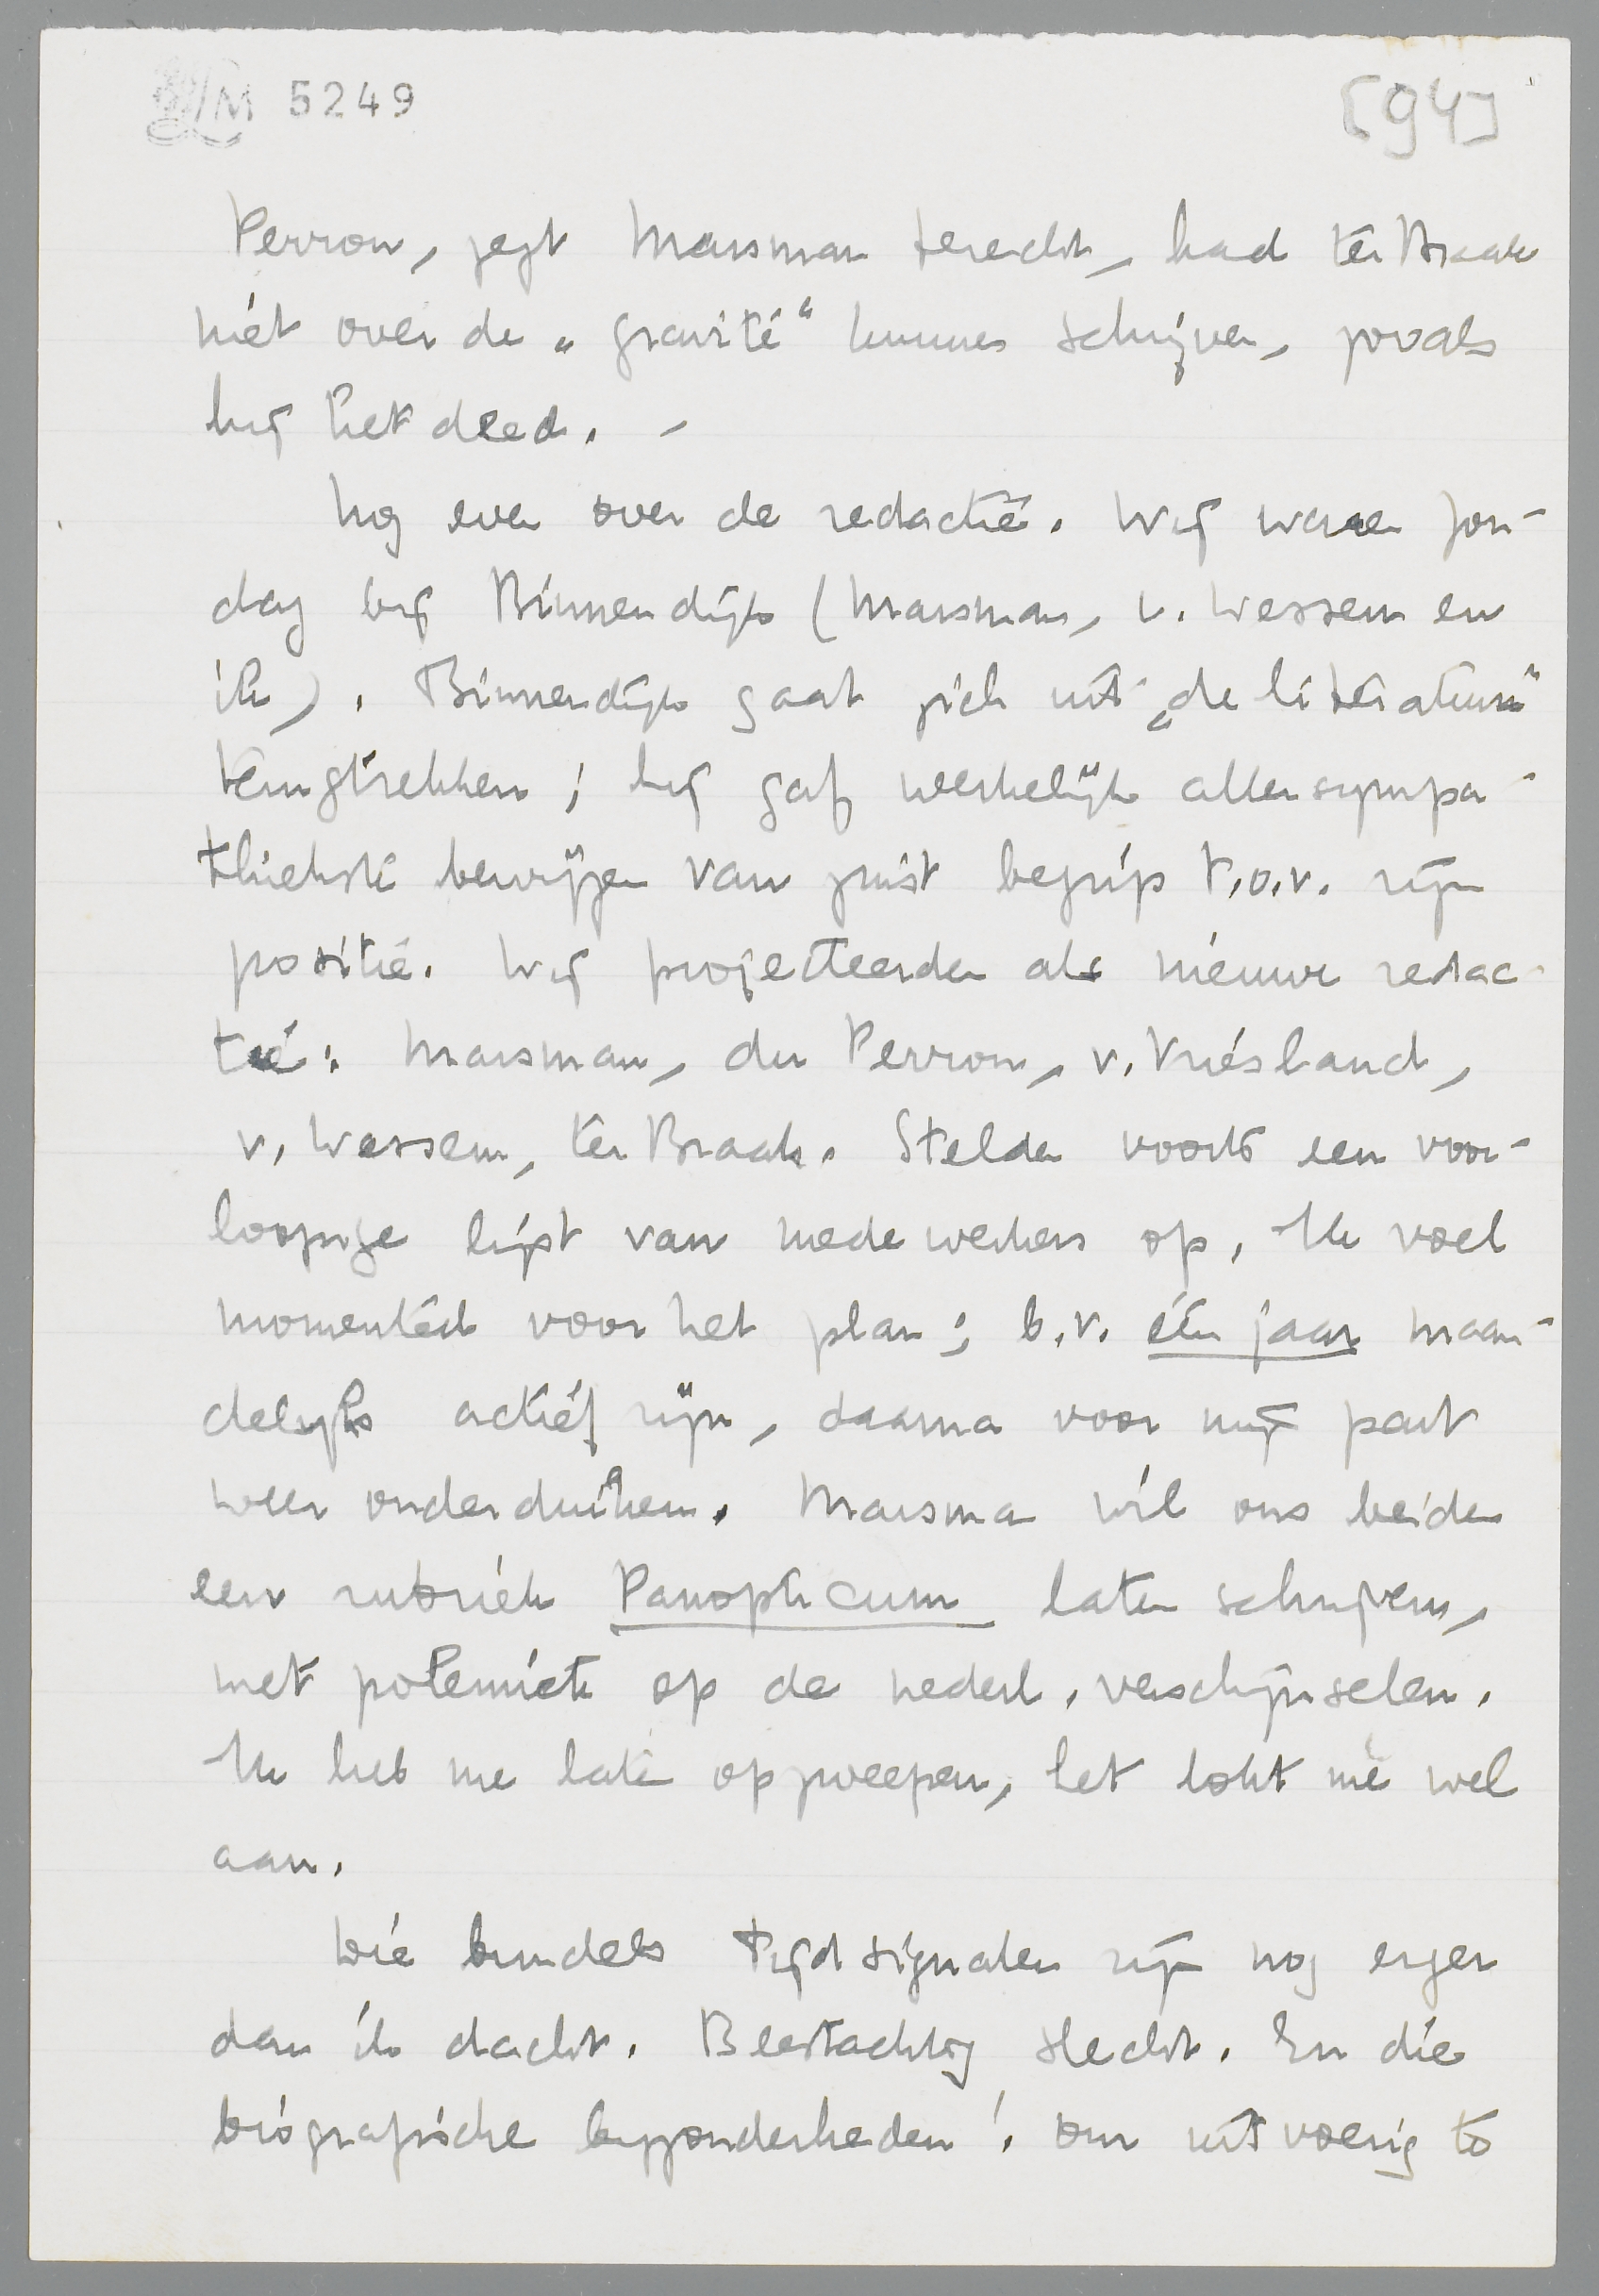 LM 5249
[94]
Perron, zegt Marsman terecht, had ter Braak
niét over de „gravité" kunnen schrijven, zooals
hij het deed. –
Nog even over de redactie. Wij waren Zon-
dag bij Binnendijk (Marsman, v. Wessem en
ik). Binnendijk gaat zich uit „de literatuur"
terugtrekken; hij gaf werkelijk allersympa-
thiekste bewijzen van juist begrip t.o.v. zijn
positie. Wij projecteerden als nieuwe redac-
tie: Marsman, du Perron, v. Vriesland,
v. Wessem, ter Braak. Stelden voorts een voor-
loopige lijst van medewerkers op. Ik voel
momenteel voor het plan; b.v. één jaar maan-
delijks actief zijn, daarna voor mijn part
weer onderduiken. Marsman wil ons beiden
een rubriek Panopticum laten schrijven,
met polemiek op de nederl. verschijnselen.
Ik heb me laten opzweepen, het lokt me wel
aan.
Die bundels Tijdsignalen zijn nog erger
dan ik dacht. Beestachtig slecht. En die
biografische bijzonderheden! Om uitvoerig te